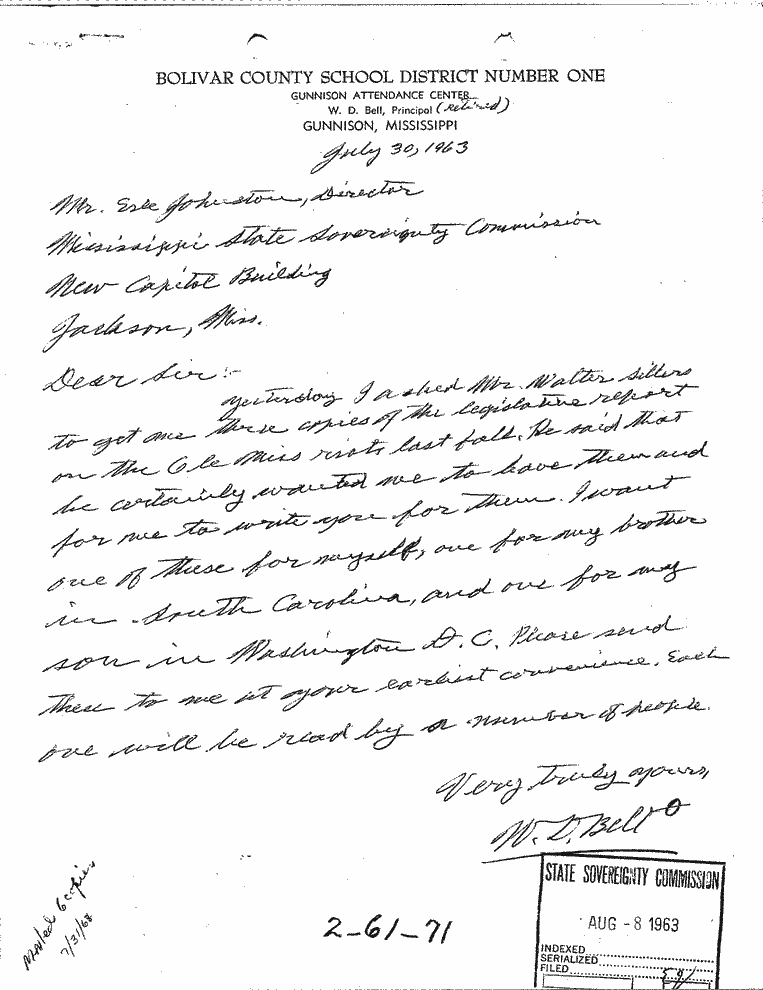 BOLIVAR COUNTY SCHOOL DISTRICT NUMBER ONE
GUNNISON ATTENDANCE CENTER
W. D. Bell, Principal (retired)
GUNNISON, MISSISSIPPI
July 30, 1963
Mr. Erle Johnston, Director
Mississippi State Sovereignty Commission
New Capitol Building
Jackson, Miss.
Dear Sir:-
Yesterday I asked Mr. Walter Sillers
to get me three copies of the legislative report
on the Ole Miss riots last fall. He said that
he certainly wanted me to have them and
for me to write you for them. I want
one of these for myself, one for my brother
in South Carolina, and one for my
son in Washington D. C. Please send
these to me at your earliest convenience. Each
one will be read by a number of people.
Very truly yours,
W. D. Bell
mailed 6 copies
7/31/63
2-61-71
STATE SOVEREIGNTY COMMISSION
AUG -8 1963
INDEXED
SERIALIZED
FILED